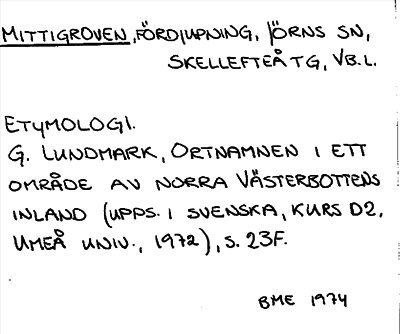 MITTIGROVEN, FÖRDJUPNING, JÖRNS SN,
SKELLEFTEÅ TG, VB.L.
ETYMOLOGI.
G. LUNDMARK, ORTNAMNEN I ETT
OMRÅDE AV NORRA VÄSTERBOTTENS
INLAND (UPPS. I SVENSKA, KURS D2,
UMEÅ UNIV., 1972), S. 23F.
BME 1974